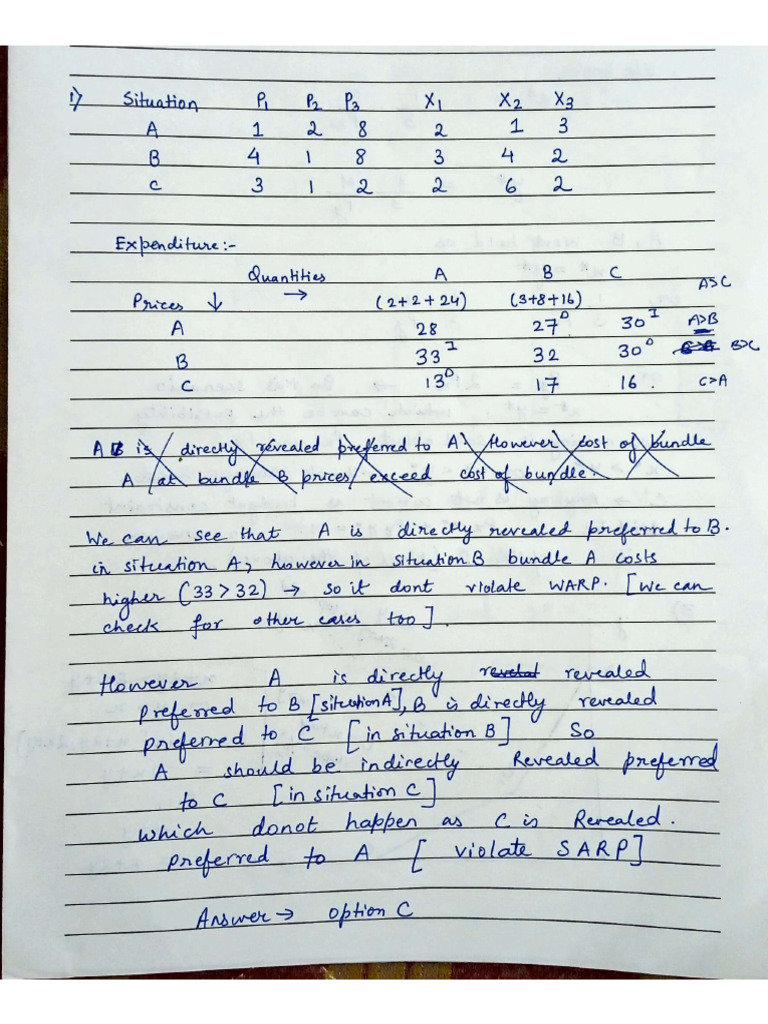 1) Situation P1 P2 P3 X1 X2 X3
A 1 2 8 2 1 3
B 4 1 8 3 4 2
C 3 1 2 2 6 2
Expenditure:-
Quantities → A B C A>C
Prices ↓ (2+2+24) (3+8+16)
A 28 27 D 30 I A>B
B 33 I 32 30 D B>C
C 13 D 17 16. C>A
A is directly revealed preferred to A. However cost of bundle
A at bundle B prices exceed cost of bundle.
We can see that A is directly revealed preferred to B.
in situation A; however in situation B bundle A costs
higher (33 > 32) → so it dont violate WARP. [we can
check for other cases too].
However A is directly revealed
preferred to B [situation A], B is directly revealed
preferred to C [in situation B] So
A should be indirectly Revealed preferred
to C [in situation C]
which donot happen as C is Revealed.
preferred to A [violate SARP]
Answer → option C